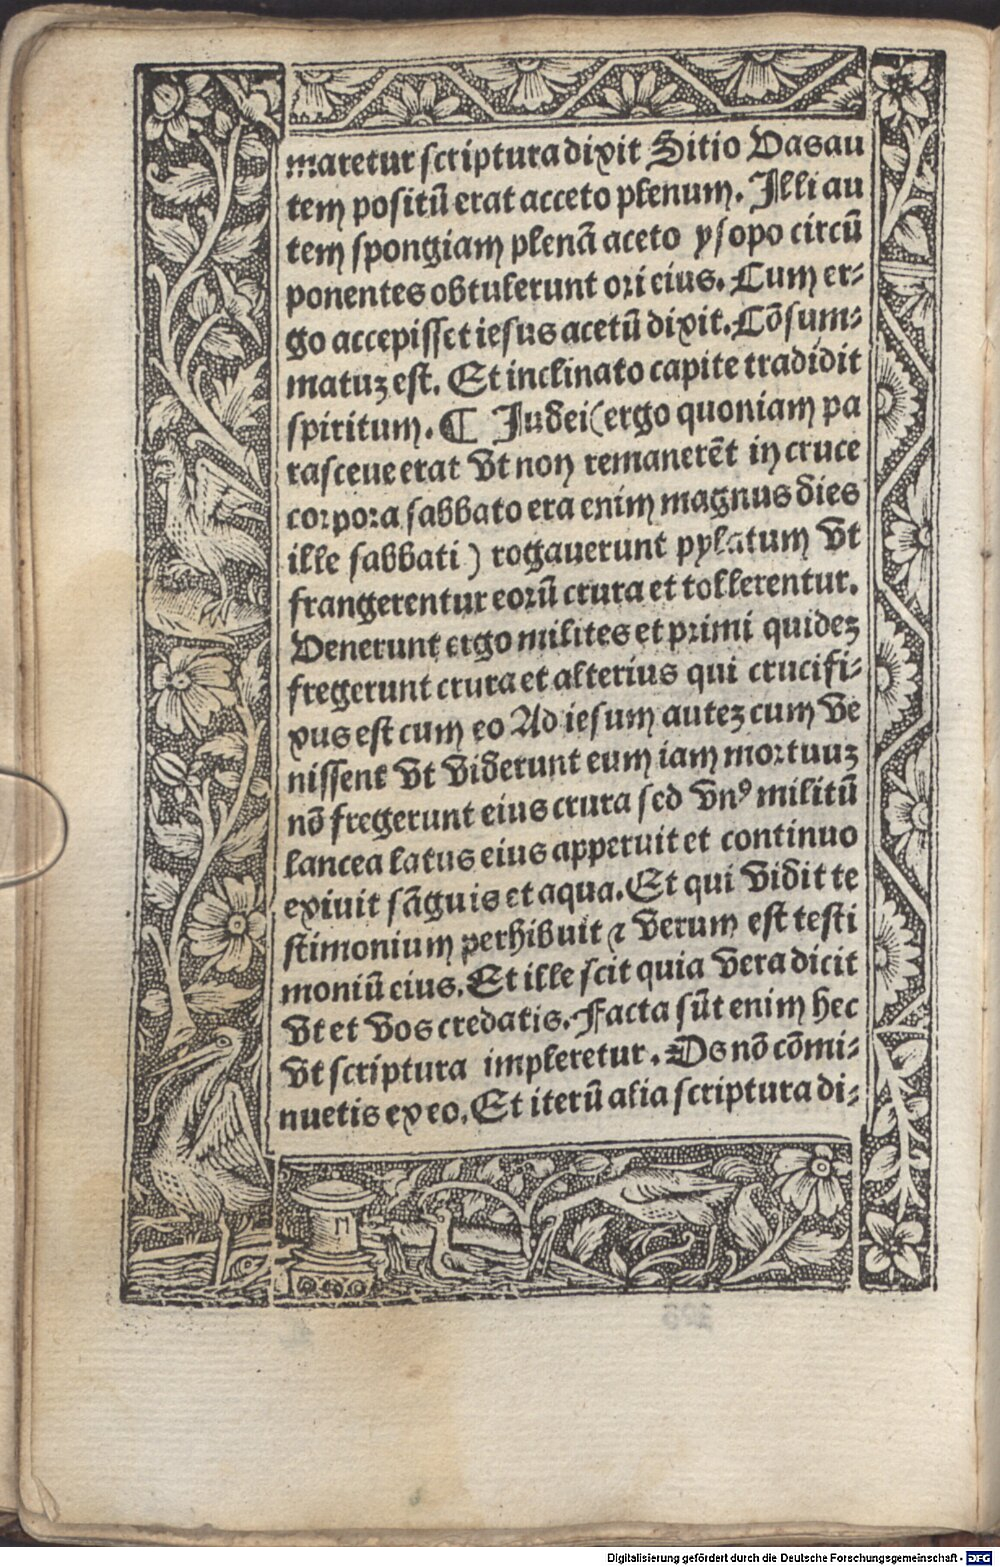 maretur scriptura dixit Sitio Vas au
tem positū erat acceto plenum. Illi au
tem spongiam plenā aceto ysopo circū
ponentes obtulerunt ori eius. Cum er-
go accepisset iesus acetū dixit. Cōsum-
matuz est. Et inclinato capite tradidit
spiritum. ¶ Iudei (ergo quoniam pa
rasceue erat vt non remanerēt in cruce
corpora sabbato era enim magnus dies
ille sabbati) rogauerunt pylatum vt
frangerentur eorū crura et tollerentur.
Venerunt ergo milites et primi quidez
fregerunt crura et alterius qui crucifi-
xus est cum eo Ad iesum autez cum ve
nissent vt viderunt eum iam mortuuz
nō fregerunt eius crura sed vnꝰ militū
lancea latus eius apperuit et continuo
exiuit sāguis et aqua. Et qui vidit te
stimonium perhibuit ⁊ verum est testi
moniū eius. Et ille scit quia vera dicit
vt et vos credatis. Facta sūt enim hec
vt scriptura impleretur. Os nō cōmi-
nuetis ex eo. Et iterū alia scriptura di-
Digitalisierung gefördert durch die Deutsche Forschungsgemeinschaft - DFG